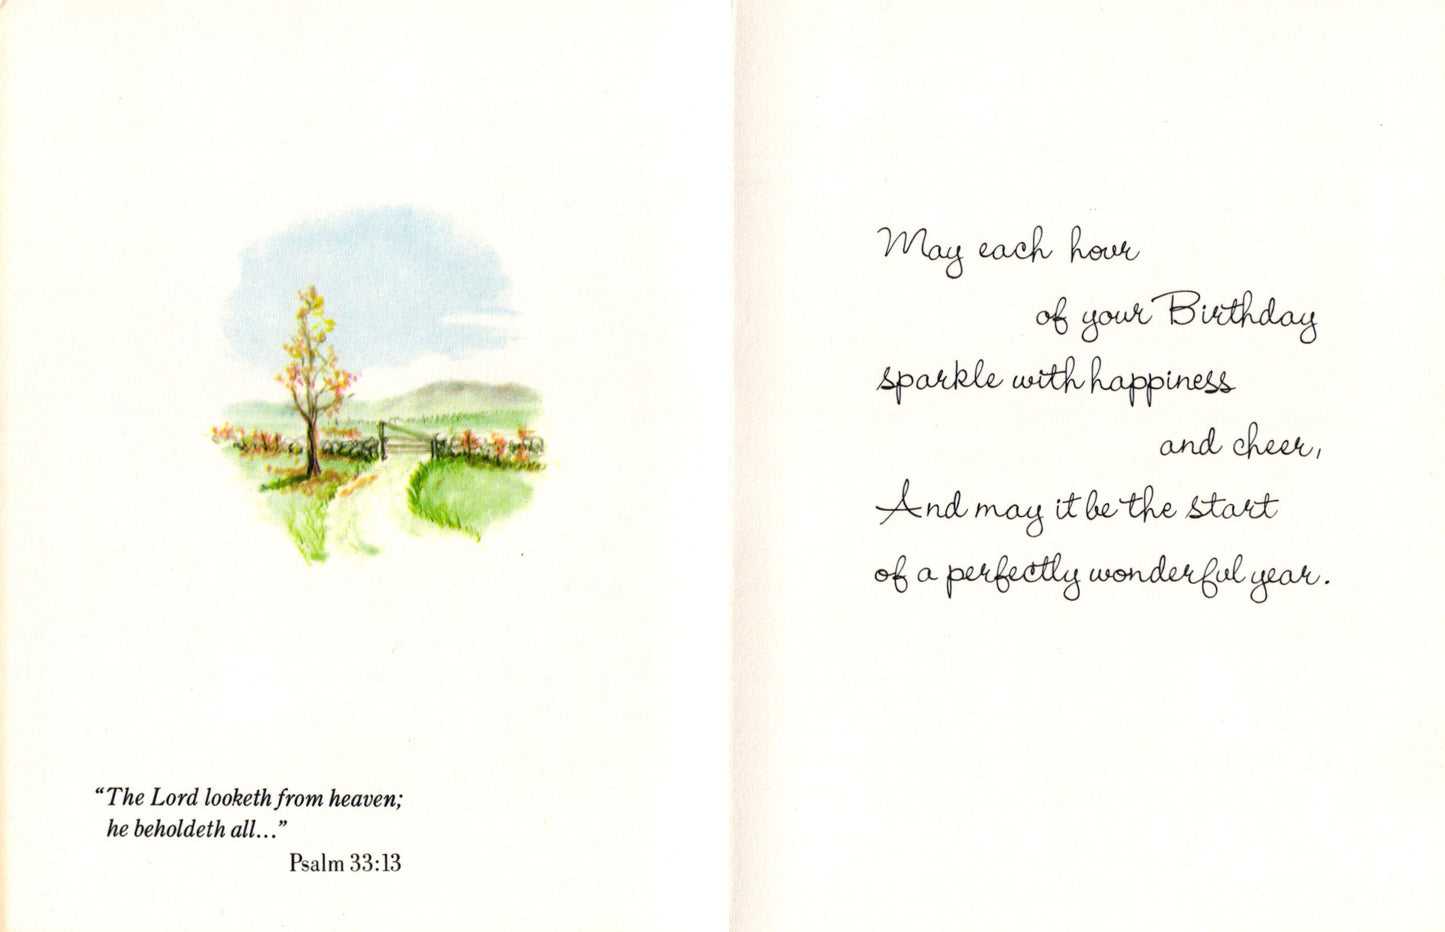 “The Lord looketh from heaven;
he beholdeth all...”
Psalm 33:13
May each hour
of your Birthday
sparkle with happiness
and cheer,
And may it be the start
of a perfectly wonderful year.